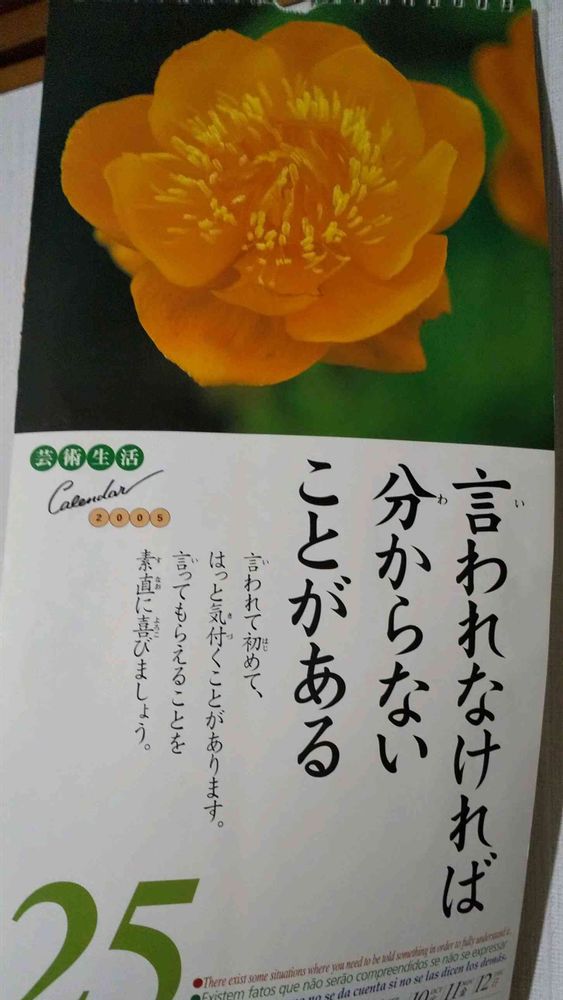 芸術生活
Calendar
2005
言われなければ
分からない
ことがある
言われて初めて、
はっと気付くことがあります。
言ってもらえることを
素直に喜びましょう。
25
There exist some situations where you need to be told something in order to fully understand it.
Existem fatos que não serão compreendidos se não se expressar
no se da cuenta si no se las dicen los demás.
10 11 12